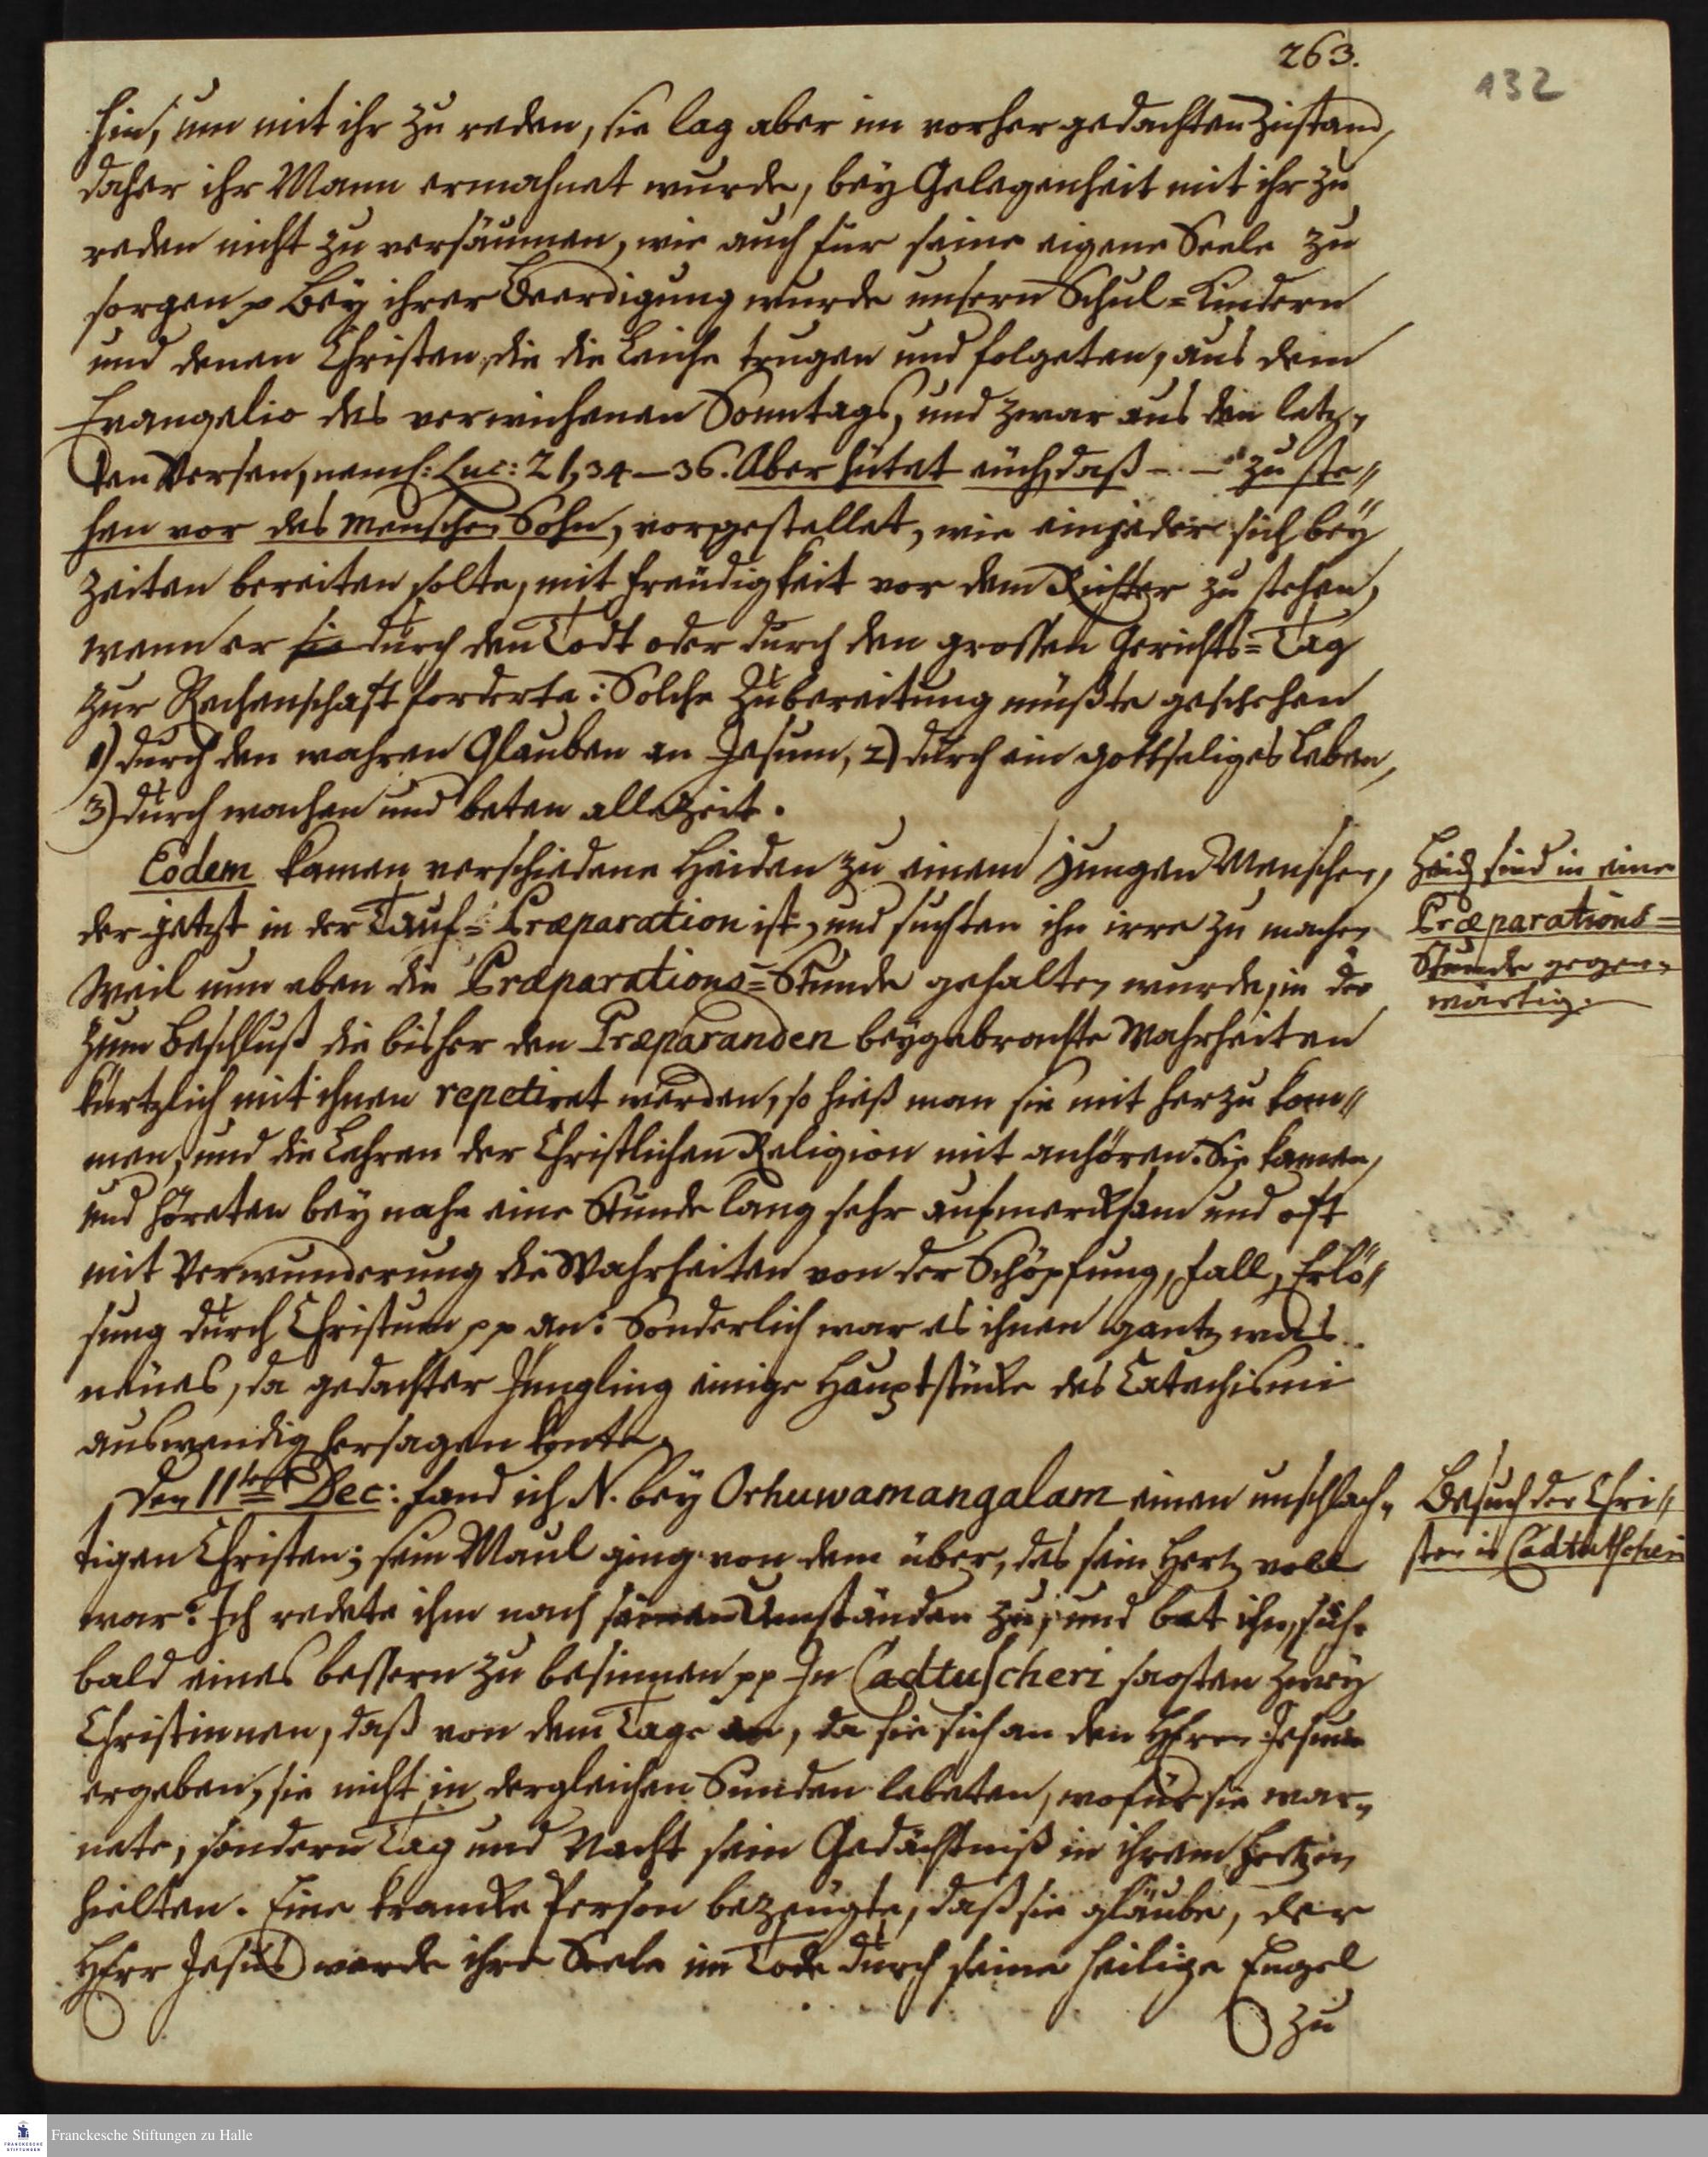 263.
132
hin, um mit ihr zu reden, sie lag aber im vorher gedachten Zustand,
daher ihr Mann ermahnet wurde, bey Gelegenheit mit ihr zu
reden nicht zu versäumen, wie auch für seine eigene Seele zu
sorgen p Bey ihrer Beerdigung wurde unsern Schul=Kindern
und denen Christen, die die Leiche trugen und folgeten, aus dem
Evangelio des verwichenen Sonntags, und zwar aus den letz„
ten Versen, neml: Luc: 21,34–36. Aber hütet eüch, daß – – zu ste„
hen vor des Menschen Sohn, vorgestellet, wie ein jeder sich bey
Zeiten bereiten solte, mit Freüdigkeit vor dem Richter zu stehen,
wenn er sie durch den Todt oder durch den grossen Gerichts=Tag
zur Rechenschaft forderte: Solche Zubereitung müßte geschehen
1) durch den wahren Glauben an Jesum, 2) durch ein gottseliges Leben,
3) durch wachen und beten allezeit.
Eodem kamen verschiedene Heiden zu einem jungen Menschen,
der jetzt in der Tauf=Præparation ist, und suchten ihn irre zu machen
Weil nun eben die Præparations=Stunde gehalten wurde, in der
zum Beschluß die bisher den Præparanden beygebrachte Wahrheiten
kürtzlich mit ihnen repetiret werden, so hieß man sie mit herzu kom„
men, und die Lehren der Christlichen Religion mit anhören. Sie kamen,
und höreten bey nahe eine Stunde lang sehr aufmercksam und oft
mit Verwunderung die Wahrheiten von der Schöpfung, Fall, Erlö„
sung durch Christum pp an: Sonderlich war es ihnen gantz was
neües, da gedachter Jüngling einige Hauptstücke des Catechismi
auswendig hersagen konte.
Heid sind in einer
Præparations=
Stunde gegen„
wärtig.
Den 11ten Dec: fand ich N. bey Orhuwamangalam einen unschlach„
tigen Christen; sein Maul ging von dem über, des sein Hertz voll
war: Ich redete ihm nach seinen Umständen zu, und bat ihn, sich
bald eines bessern zu besinnen pp In Cadtuscheri sagten zwey
Christinnen, daß von dem Tage an, da sie sich an den HErrn Jesum
ergeben, sie nicht in dergleichen Sünden lebeten, wofür sie war„
nete, sondern Tag und Nacht sein Gedächtniß in ihrem Hertzen
hielten. Eine krancke Person bezeügte, daß sie gläube, der
HErr Jesus werde ihre Seele im Tode durch seine heilige Engel
zu
Besuch der Chri„
sten in Cadtutscheri
Franckesche Stiftungen zu Halle